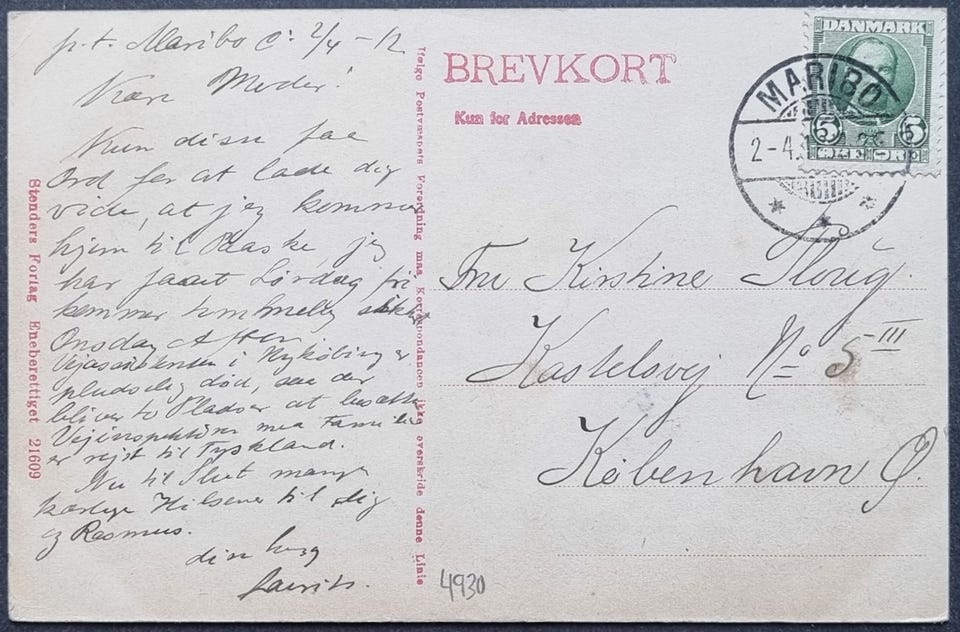 p.t. Maribo d: 2/4 - 12
Kære Moder!
Kun disse faa
Ord for at lade dig
vide, at jeg kommer
hjem til Paaske jeg
har faaet Lørdag fri
kommer temmelig sikkert
Onsdag Aften
i Nykøbing er
pludselig død, saa der
bliver to Pladser at besætte
Vejinspektøren med Familie
er rejst til Tyskland.
Nu til Slut mange
kærlige Hilsener til dig
og Rasmus.
din
Laurits.
Stenders Forlag Eneberettiget 21609
Ifølge Postvæsnets Forordning maa Korrespondancen ikke overskride denne Linie
BREVKORT
Kun for Adressen
DANMARK
5 5
ØRE ØRE
MARIBO
2-4
Fru Kirstine
Kastelsvej No 5 - III
København Ø.
4930